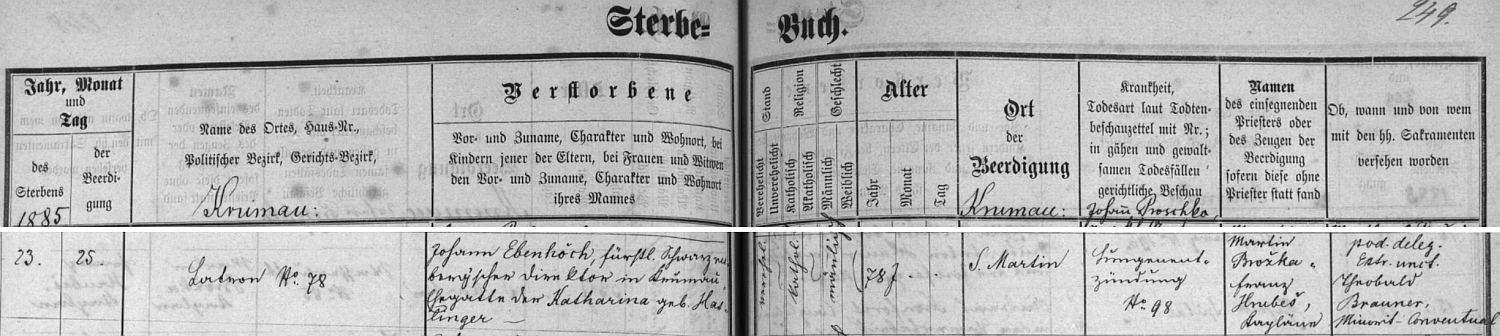 249.
Sterbe= Buch.
Jahr, Monat
und
Tag
des
Sterbens
1885
der
Beerdi-
gung
Name des Ortes, Haus-Nr.,
Politischer Bezirk, Gerichts-Bezirk,
Krumau:
Verstorbene
Vor- und Zuname, Charakter und Wohnort, bei
Kindern jener der Eltern, bei Frauen und Witwen
den Vor- und Zuname, Charakter und Wohnort
ihres Mannes
Stand
Verehelicht
Unverehelicht
Religion
Katholisch
Akatholisch
Geschlecht
Männlich
Weiblich
Alter
Jahr
Monat
Tag
Ort
der
Beerdigung
Krumau:
Krankheit,
Todesart laut Todten-
beschauzettel mit Nr.;
in gähen und gewalt-
samen Todesfällen
gerichtliche Beschau
Johann Proschko,
Namen
des einsegnenden
Priesters oder
des Zeugen der
Beerdigung
sofern diese ohne
Priester statt fand
Ob, wann und von wem
mit den hh. Sakramenten
versehen worden
23.
25.
Latron No. 78
Johann Ebenhöch, fürstl. Schwarzen-
berg'scher Direktor in Krumau,
Ehegatte der Katharina geb. Has-
linger
verehel.
kathol.
männlich
78 J
S. Martin
Lungenent-
zündung
No 98
Martin
Brožka
Franz
Hrubeš,
Kapläne
pod. deleg.
Extr. unct.
Theobald
Brauner,
Minorit-Conventual